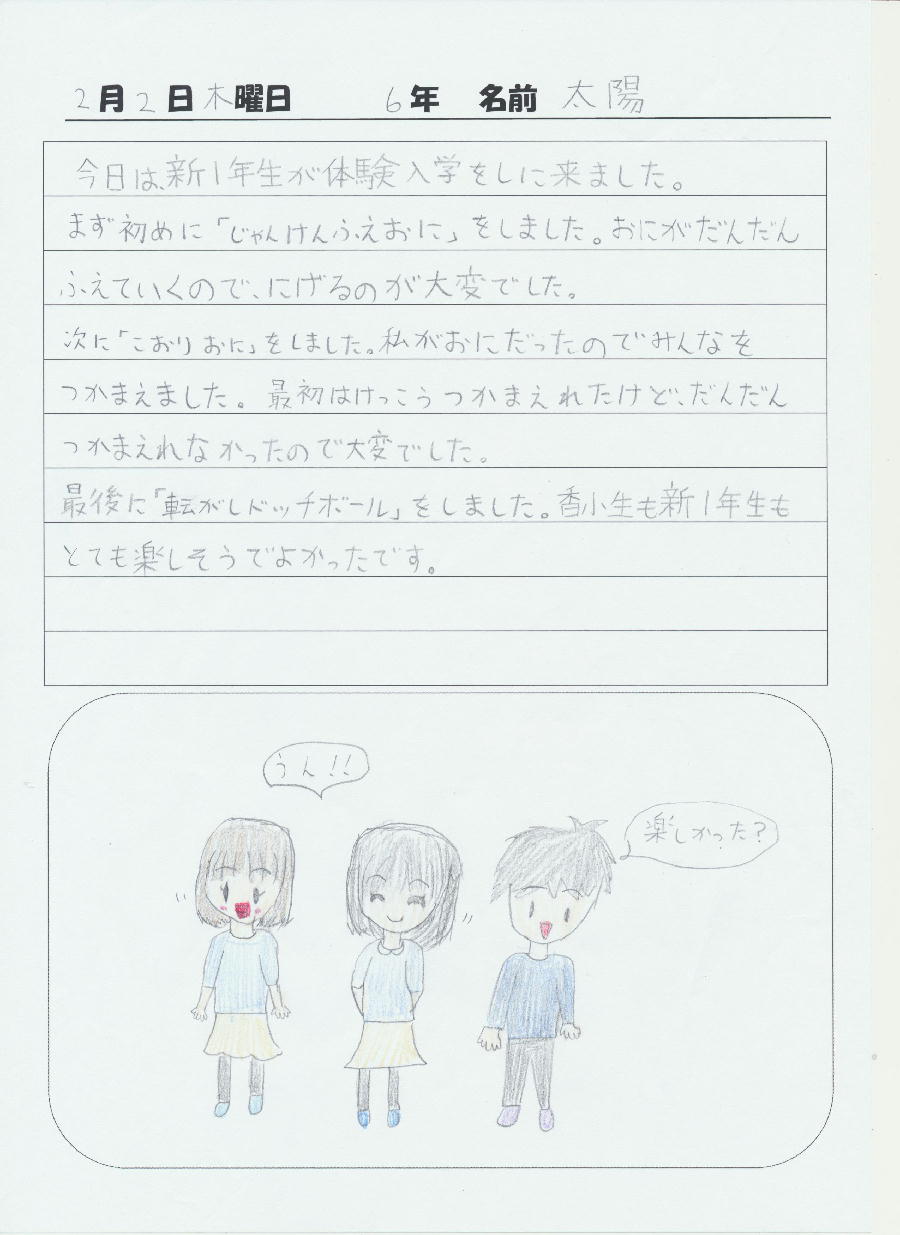 2月2日木曜日 6年 名前 太陽
今日は、新1年生が体験入学をしに来ました。
まず初めに「じゃんけんふえおに」をしました。おにがだんだん
ふえていくので、にげるのが大変でした。
次に「こおりおに」をしました。私がおにだったのでみんなを
つかまえました。最初はけっこうつかまえれたけど、だんだん
つかまえれなかったので大変でした。
最後に「転がしドッチボール」をしました。香小生も新1年生も
とても楽しそうでよかったです。
うん!!
楽しかった?